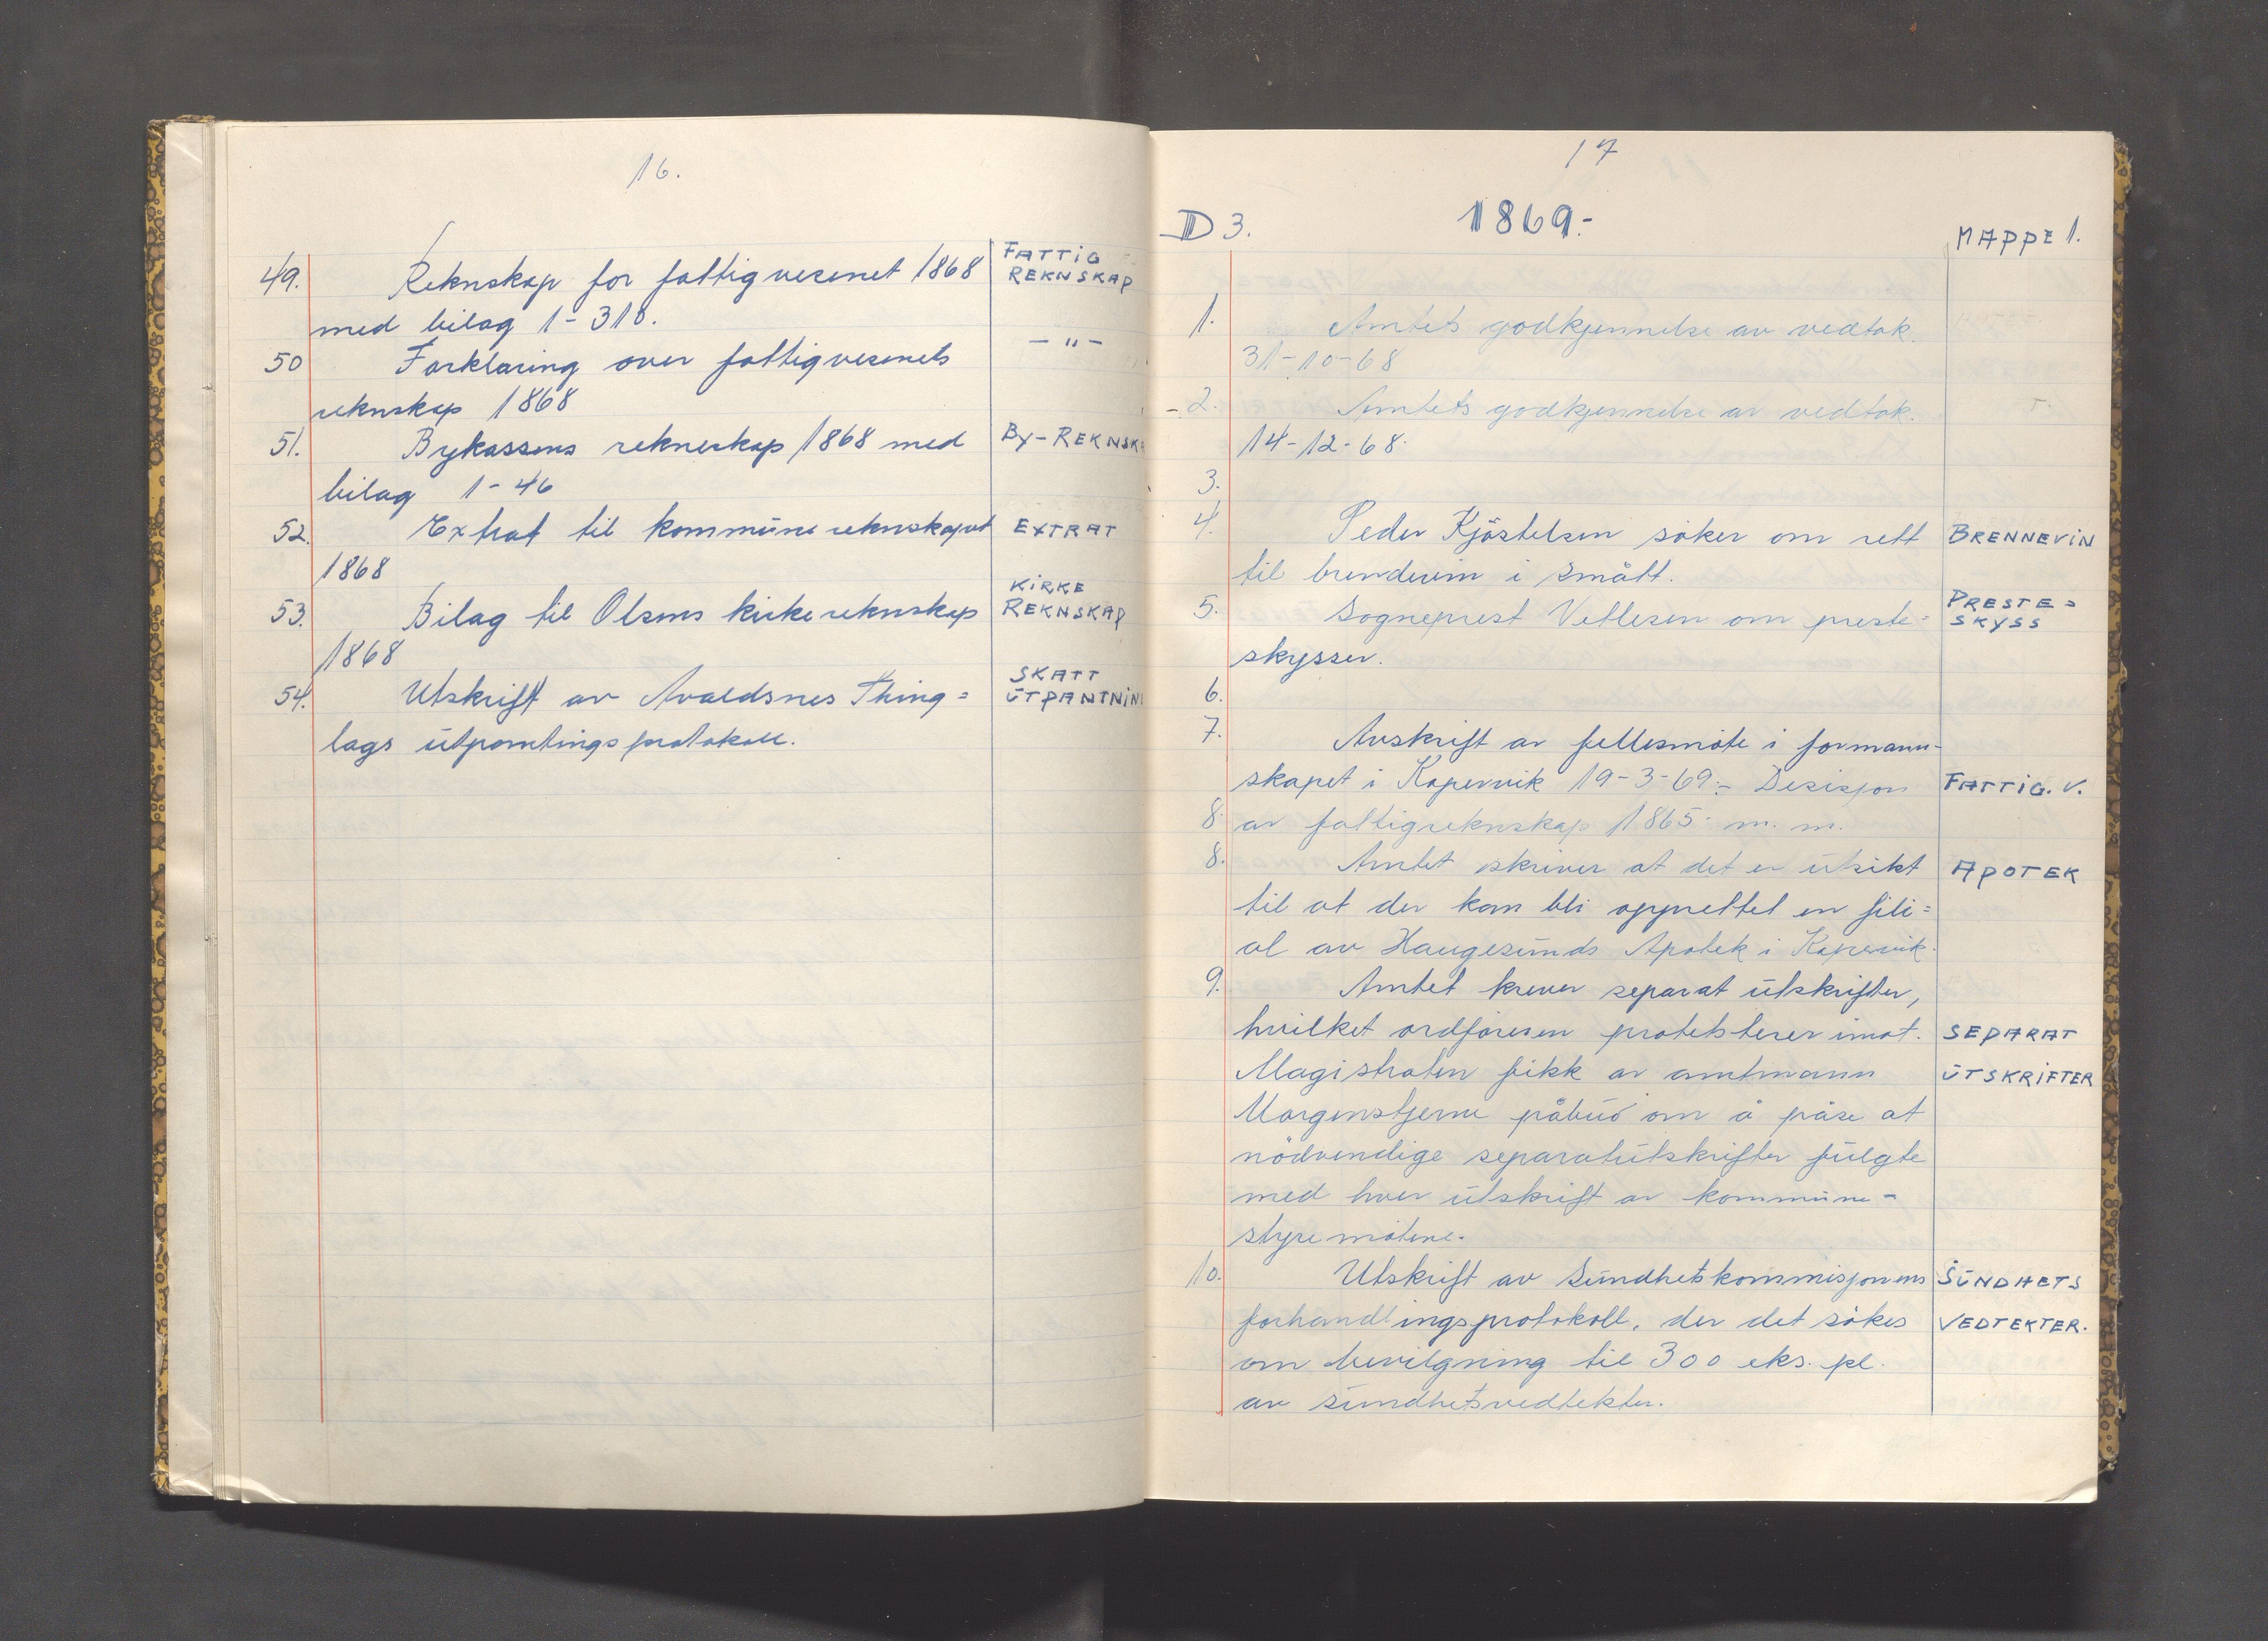 16.
49. Reknskap for fattigvesenet 1868 FATTIG REKNSKAP
med bilag 1-318.
50 Forklaring over fattigvesenets - " -
reknskap 1868
51. Bykassens rekneskap 1868 med BY-REKNSKA
bilag 1-46
52. Extrat til kommune reknskapet EXTRAT
1868
53. Bilag til Olsens kirkereknskap KIRKE REKNSKAP
1868
54. Utskrift av Avaldsnes Thing= SKATT UTPANTNIN
lags utpantingsprotokoll.
17
D 3. 1869.- MAPPE 1.
1. Amtets godkjennelse av vedtak.
31-10-68
2. Amtets godkjennelse av vedtak.
14-12-68.
3.
4. Peder Kjöstelsen søker om rett BRENNEVIN
til brendevin i smått.
5. Sogneprest Vetlesen om preste= PRESTE= SKYSS
skysser.
6.
7. Avskrift av fellesmøte i formann-
skapet i Kopervik 19-3-69.- Desisjon FATTIG. V.
8. av fattigreknskap 1865 m. m.
8. Amtet skriver at det er utsikt APOTEK
til at der kan bli opprettet en fili=
al av Haugesunds Apotek i Kopervik.
9. Amtet krever separat utskrifter,
hvilket ordføreren protetsterer imot. SEPARAT
Magistraten fikk av amtmann UTSKRIFTER
Morgenstjerne påbud om å påse at
nödvendige separatutskrifter fulgte
med hver utskrift av kommune-
styremøtene.
10. Utskrift av Sundhetskommisjonens SUNDHETS
forhandlingsprotokoll, der det søkes VEDTEKTER.
om bevilgning til 300 eks. pl.
av sundhetsvedtekter.